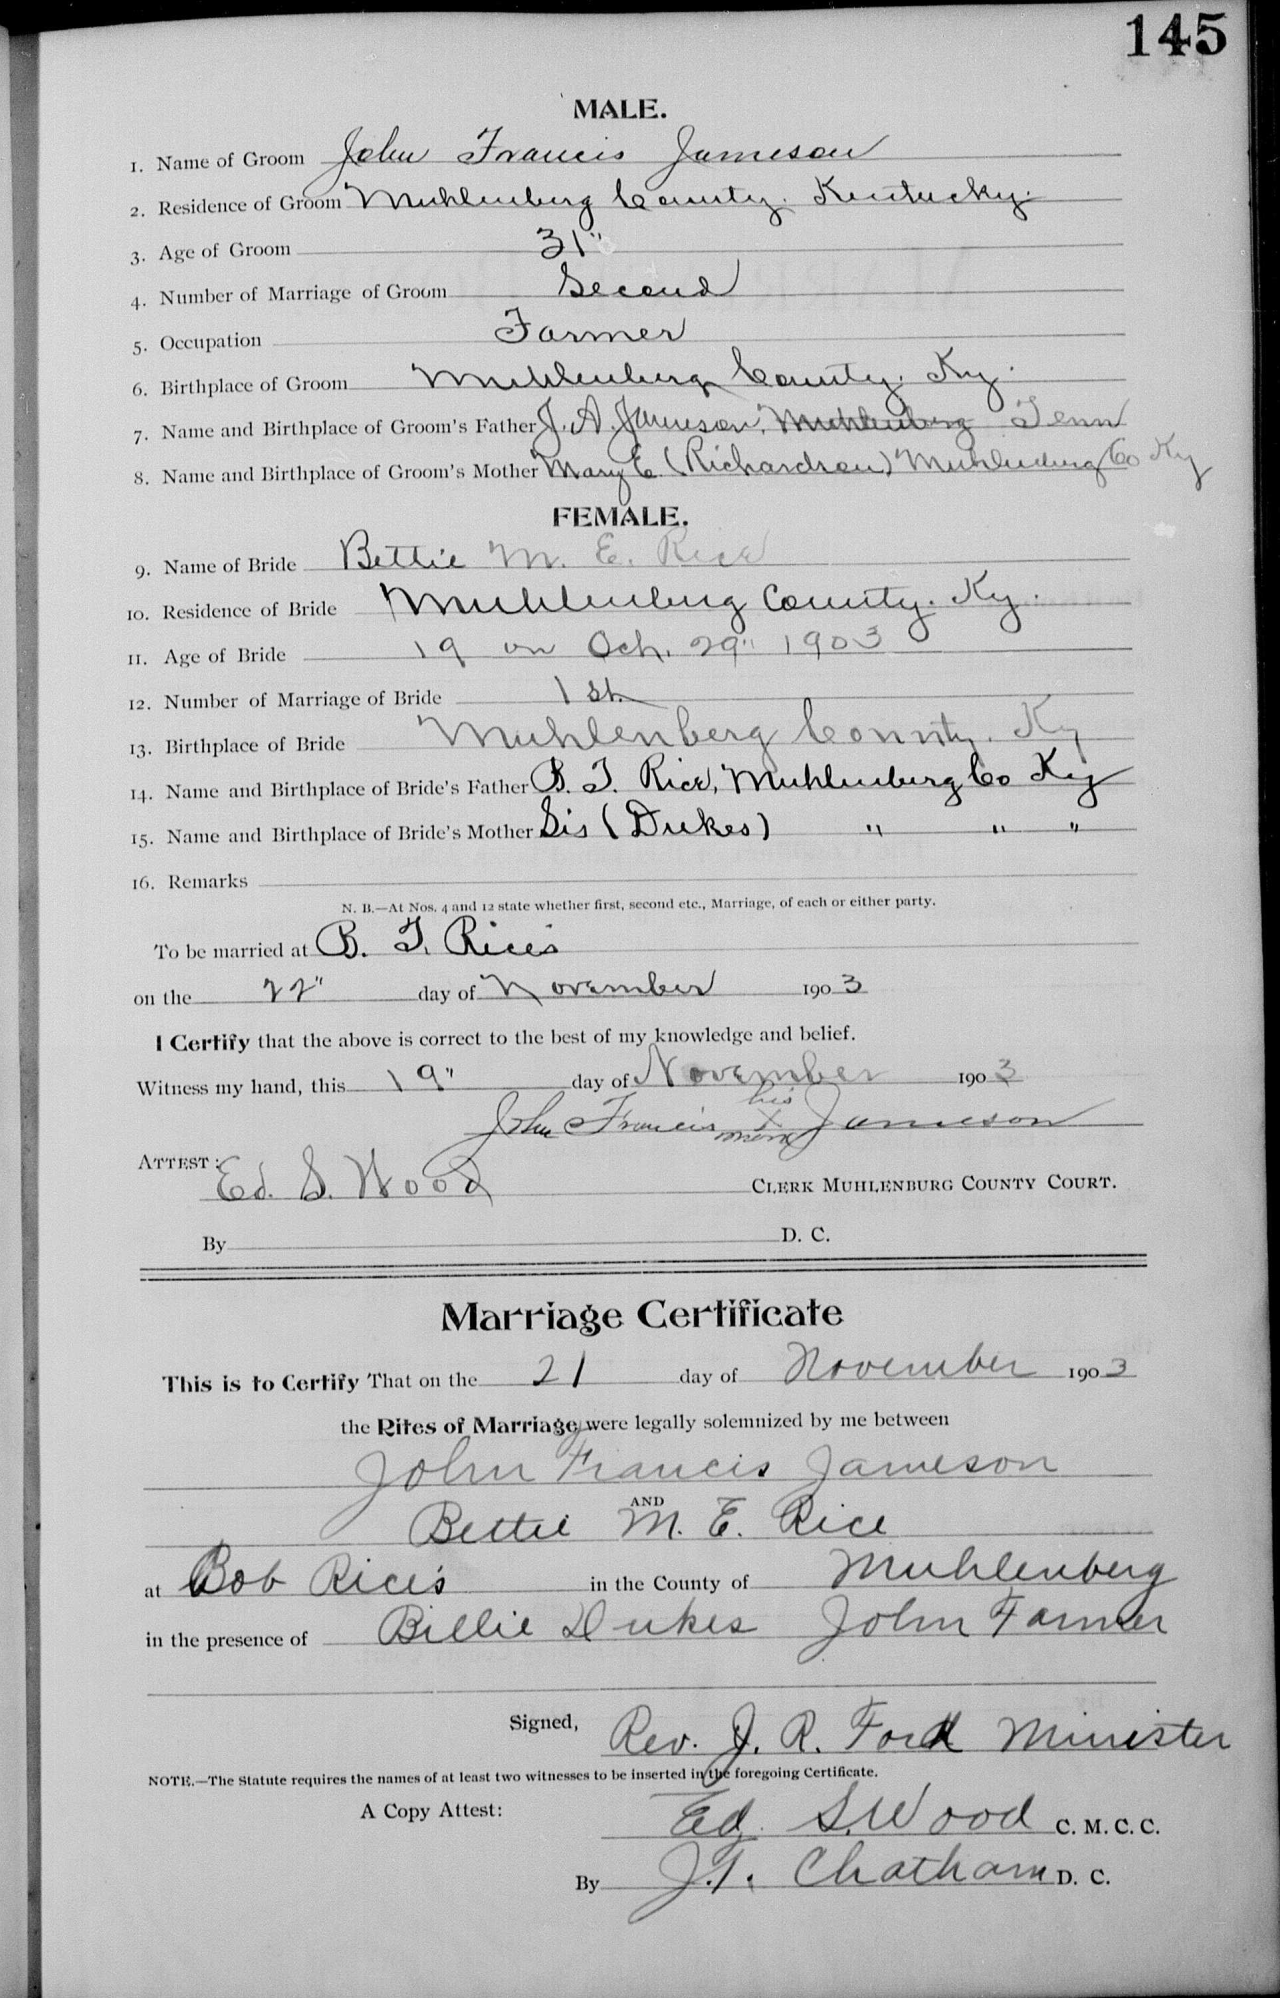 145
MALE.
1. Name of Groom John Francis Jameson
2. Residence of Groom Muhlenberg County. Kentucky.
3. Age of Groom 31"
4. Number of Marriage of Groom Second
5. Occupation Farmer
6. Birthplace of Groom Muhlenberg County. Ky.
7. Name and Birthplace of Groom's Father J. A. Jameson, Muhlenberg Tenn
8. Name and Birthplace of Groom's Mother Mary E (Richardson) Muhlenberg Co Ky
FEMALE.
9. Name of Bride Bettie M. E. Rice
10. Residence of Bride Muhlenberg County. Ky.
11. Age of Bride 19 on Oct. 29" 1903
12. Number of Marriage of Bride 1st.
13. Birthplace of Bride Muhlenberg County. Ky
14. Name and Birthplace of Bride's Father B. T. Rice, Muhlenberg Co Ky
15. Name and Birthplace of Bride's Mother Sis (Dukes) " " "
16. Remarks
N. B.—At Nos. 4 and 12 state whether first, second etc., Marriage, of each or either party.
To be married at B. T. Rice's
on the 22" day of November 1903
I Certify that the above is correct to the best of my knowledge and belief.
Witness my hand, this 19" day of November 1903
his
John Francis X Jameson
mark
ATTEST: Ed. S. Wood CLERK MUHLENBURG COUNTY COURT.
By D. C.
Marriage Certificate
This is to Certify That on the 21 day of November 1903
the Rites of Marriage were legally solemnized by me between
John Francis Jameson
AND
Bettie M. E. Rice
at Bob Rice's in the County of Muhlenberg
in the presence of Billie Dukes John Farmer
Signed, Rev. J. R. Ford Minister
NOTE.—The Statute requires the names of at least two witnesses to be inserted in the foregoing Certificate.
A Copy Attest: Ed. S. Wood C. M. C. C.
By J. T. Chatham D. C.